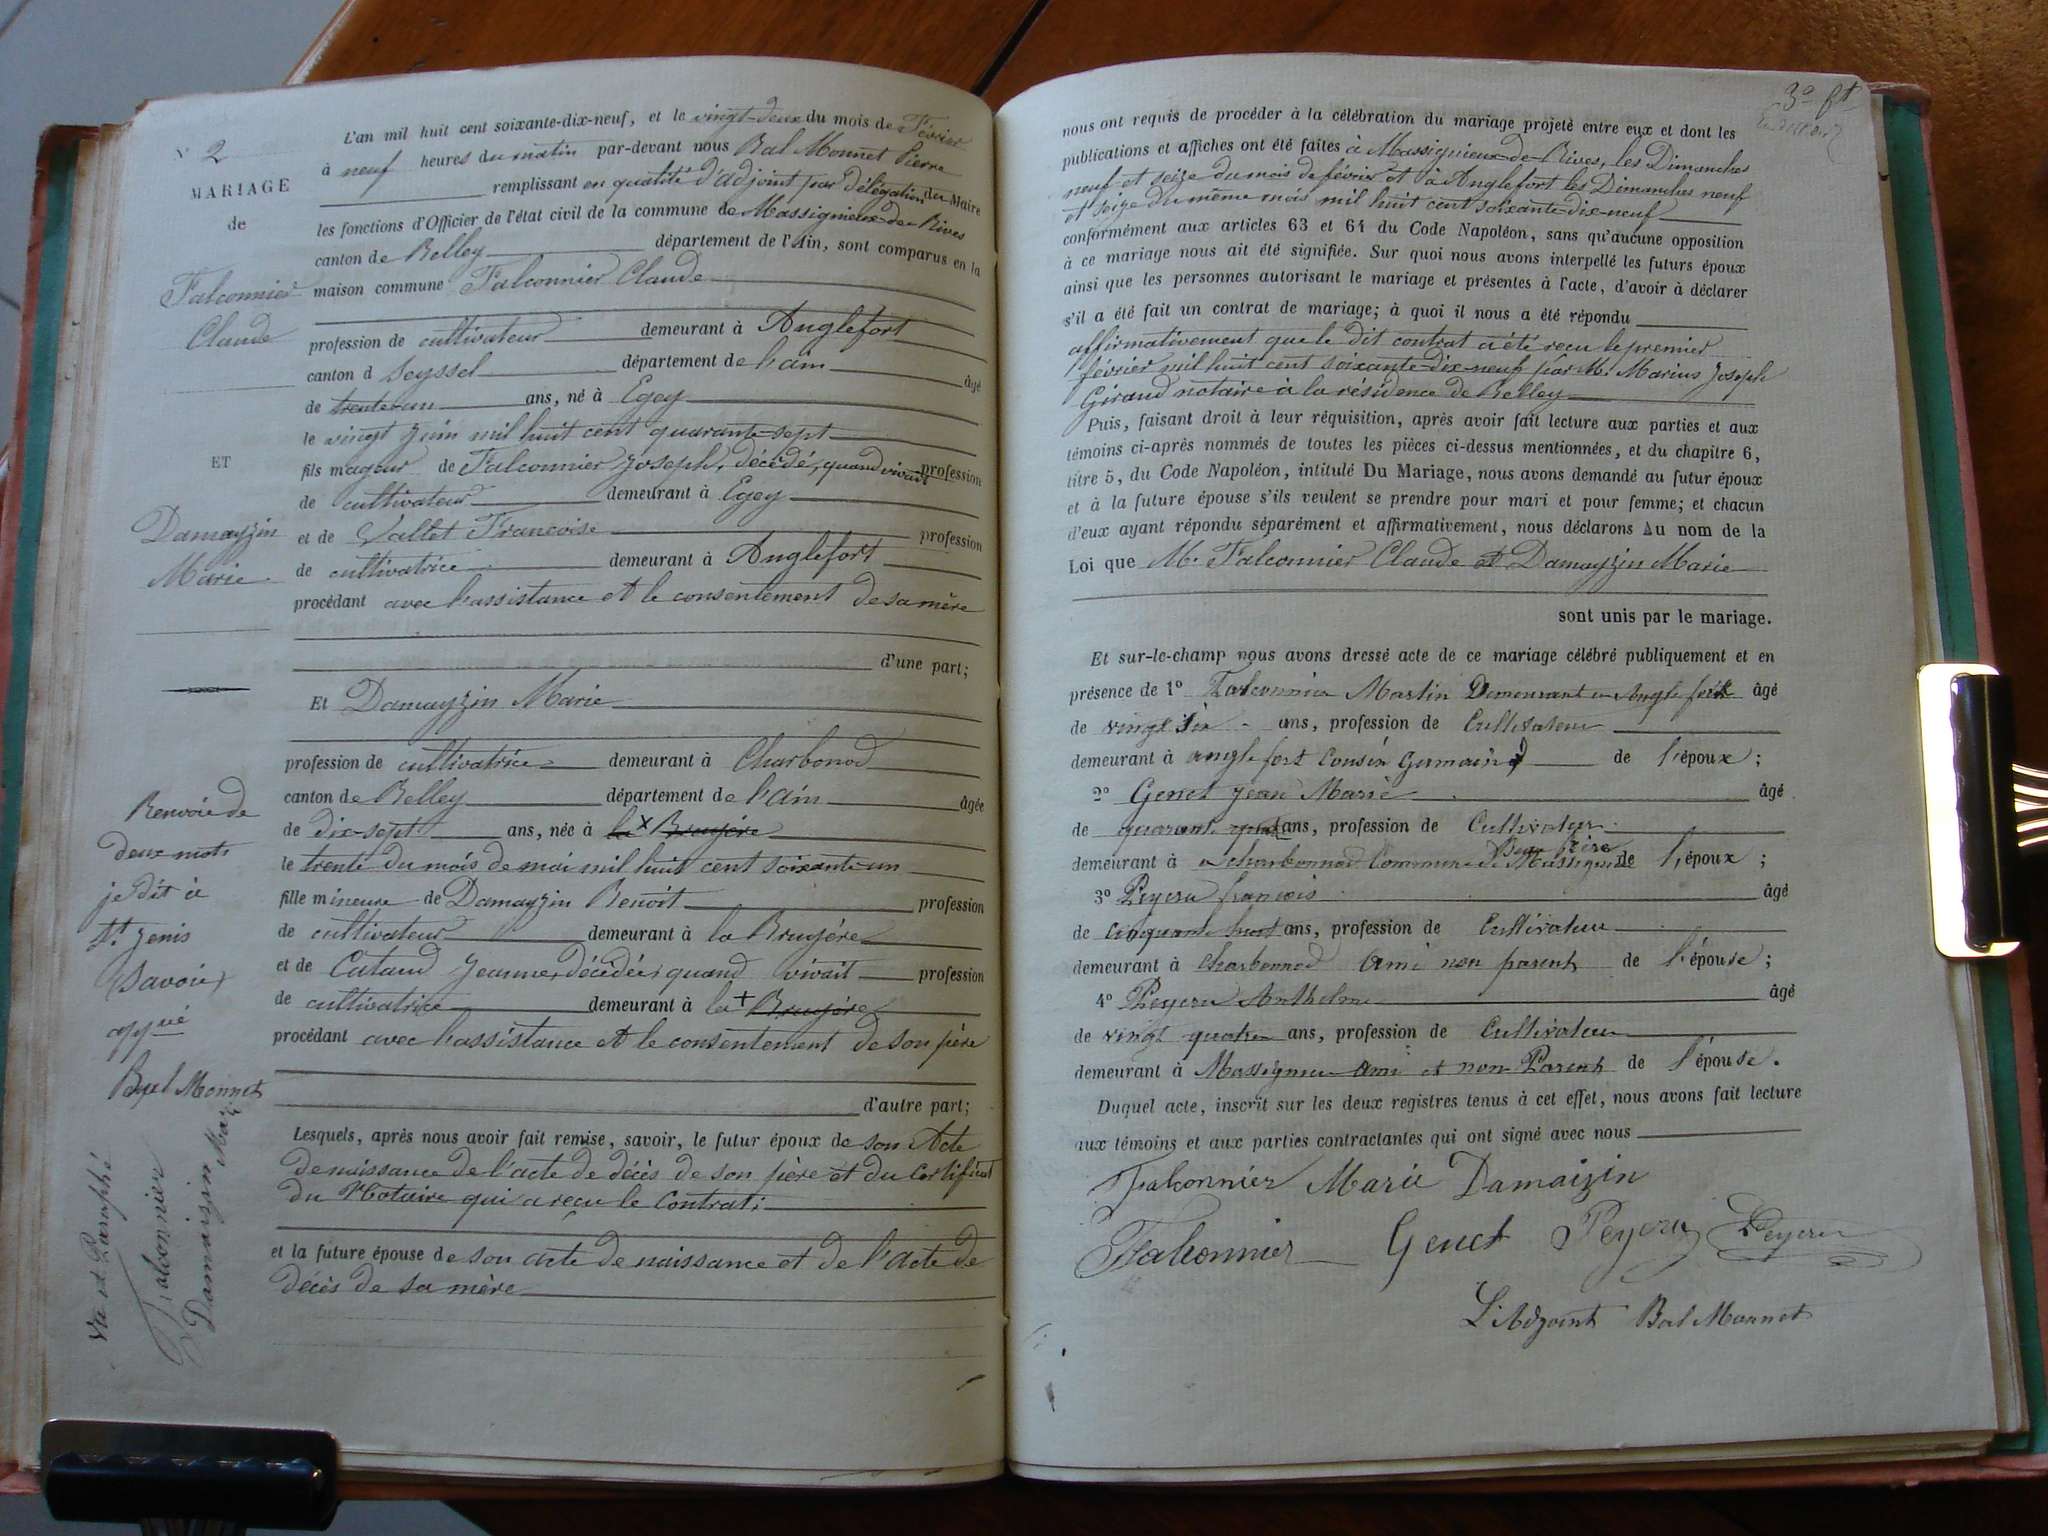 N° 2
MARIAGE
de
Falconnier
Claude
ET
Damayzin
Marie
Renvoie de
deux mots
je dit à
St Jenis
Savoie,
appvé
Bal Monnet
Vu et Paraphé
Falconnier
Damaizin Marie
L'an mil huit cent soixante-dix-neuf, et le vingt-deux du mois de Février
à neuf heures du matin par-devant nous Bal Monnet Pierre
remplissant en qualité d'adjoint par délégation du Maire
les fonctions d'Officier de l'état civil de la commune de Massignieux-de-Rives
canton de Belley département de l'Ain, sont comparus en la
maison commune Falconnier Claude
profession de cultivateur demeurant à Anglefort
canton d Seyssel département de l'ain âgé
de trente-un ans, né à Egey
le vingt juin mil huit cent quarante-sept
fils majeur de Falconnier Joseph, décédé, quand vivait profession
de cultivateur demeurant à Egey
et de Vallet Francoise profession
de cultivatrice demeurant à Anglefort
procédant avec l'assistance et le consentement de sa mère
d'une part;
Et Damayzin Marie
profession de cultivatrice demeurant à Charbonod
canton de Belley département de l'ain âgée
de dix-sept ans, née à la x Bruyère
le trente du mois de mai mil huit cent soixante-un
fille mineure de Damayzin Benoit profession
de cultivateur demeurant à la Bruyère
et de Cataud Jeanne, décédée, quand vivait profession
de cultivatrice demeurant à la + Bruyère
procédant avec l'assistance et le consentement de son père
d'autre part;
Lesquels, après nous avoir fait remise, savoir, le futur époux de son Acte
de naissance de l'acte de décès de son père et du certificat
du Notaire qui a reçu le Contrat;
et la future épouse de son acte de naissance et de l'acte de
décès de sa mère
nous ont requis de procéder à la célébration du mariage projeté entre eux et dont les
publications et affiches ont été faites à Massignieux-de-Rives, les Dimanches
neuf et seize du mois de février et à Anglefort les Dimanches neuf
et seize du même mois mil huit cent soixante-dix-neuf
conformément aux articles 63 et 64 du Code Napoléon, sans qu'aucune opposition
à ce mariage nous ait été signifiée. Sur quoi nous avons interpellé les futurs époux
ainsi que les personnes autorisant le mariage et présentes à l'acte, d'avoir à déclarer
s'il a été fait un contrat de mariage; à quoi il nous a été répondu
affirmativement que le dit contrat a été reçu le premier
février mil huit cent soixante-dix-neuf par M. Marius Joseph
Giraud notaire à la résidence de Belley
Puis, faisant droit à leur réquisition, après avoir fait lecture aux parties et aux
témoins ci-après nommés de toutes les pièces ci-dessus mentionnées, et du chapitre 6,
titre 5, du Code Napoléon, intitulé Du Mariage, nous avons demandé au futur époux
et à la future épouse s'ils veulent se prendre pour mari et pour femme; et chacun
d'eux ayant répondu séparément et affirmativement, nous déclarons Au nom de la
Loi que M. Falconnier Claude et Damayzin Marie
sont unis par le mariage.
Et sur-le-champ nous avons dressé acte de ce mariage célébré publiquement et en
présence de 1° Falconnier Martin Demeurant en Anglefort âgé
de vingt six ans, profession de Cultivateur
demeurant à anglefort Cousin Germain de l'époux;
2° Genet Jean Marie âgé
de quarante ans, profession de Cultivateur
Beau frère
demeurant à a charbonnod Commune de Massignieu de l'époux;
3° Peyzru francois âgé
de cinquante huit ans, profession de Cultivateur
demeurant à charbonnod Ami non parent de l'épouse;
4° Peyzru Anthelme âgé
de vingt quatre ans, profession de Cultivateur
demeurant à Massignieu Ami et non Parent de l'épouse.
Duquel acte, inscrit sur les deux registres tenus à cet effet, nous avons fait lecture
aux témoins et aux parties contractantes qui ont signé avec nous
Falconnier Marie Damaizin
Falconnier Genet Peyzru Peyzru
L'Adjoint Bal Monnet